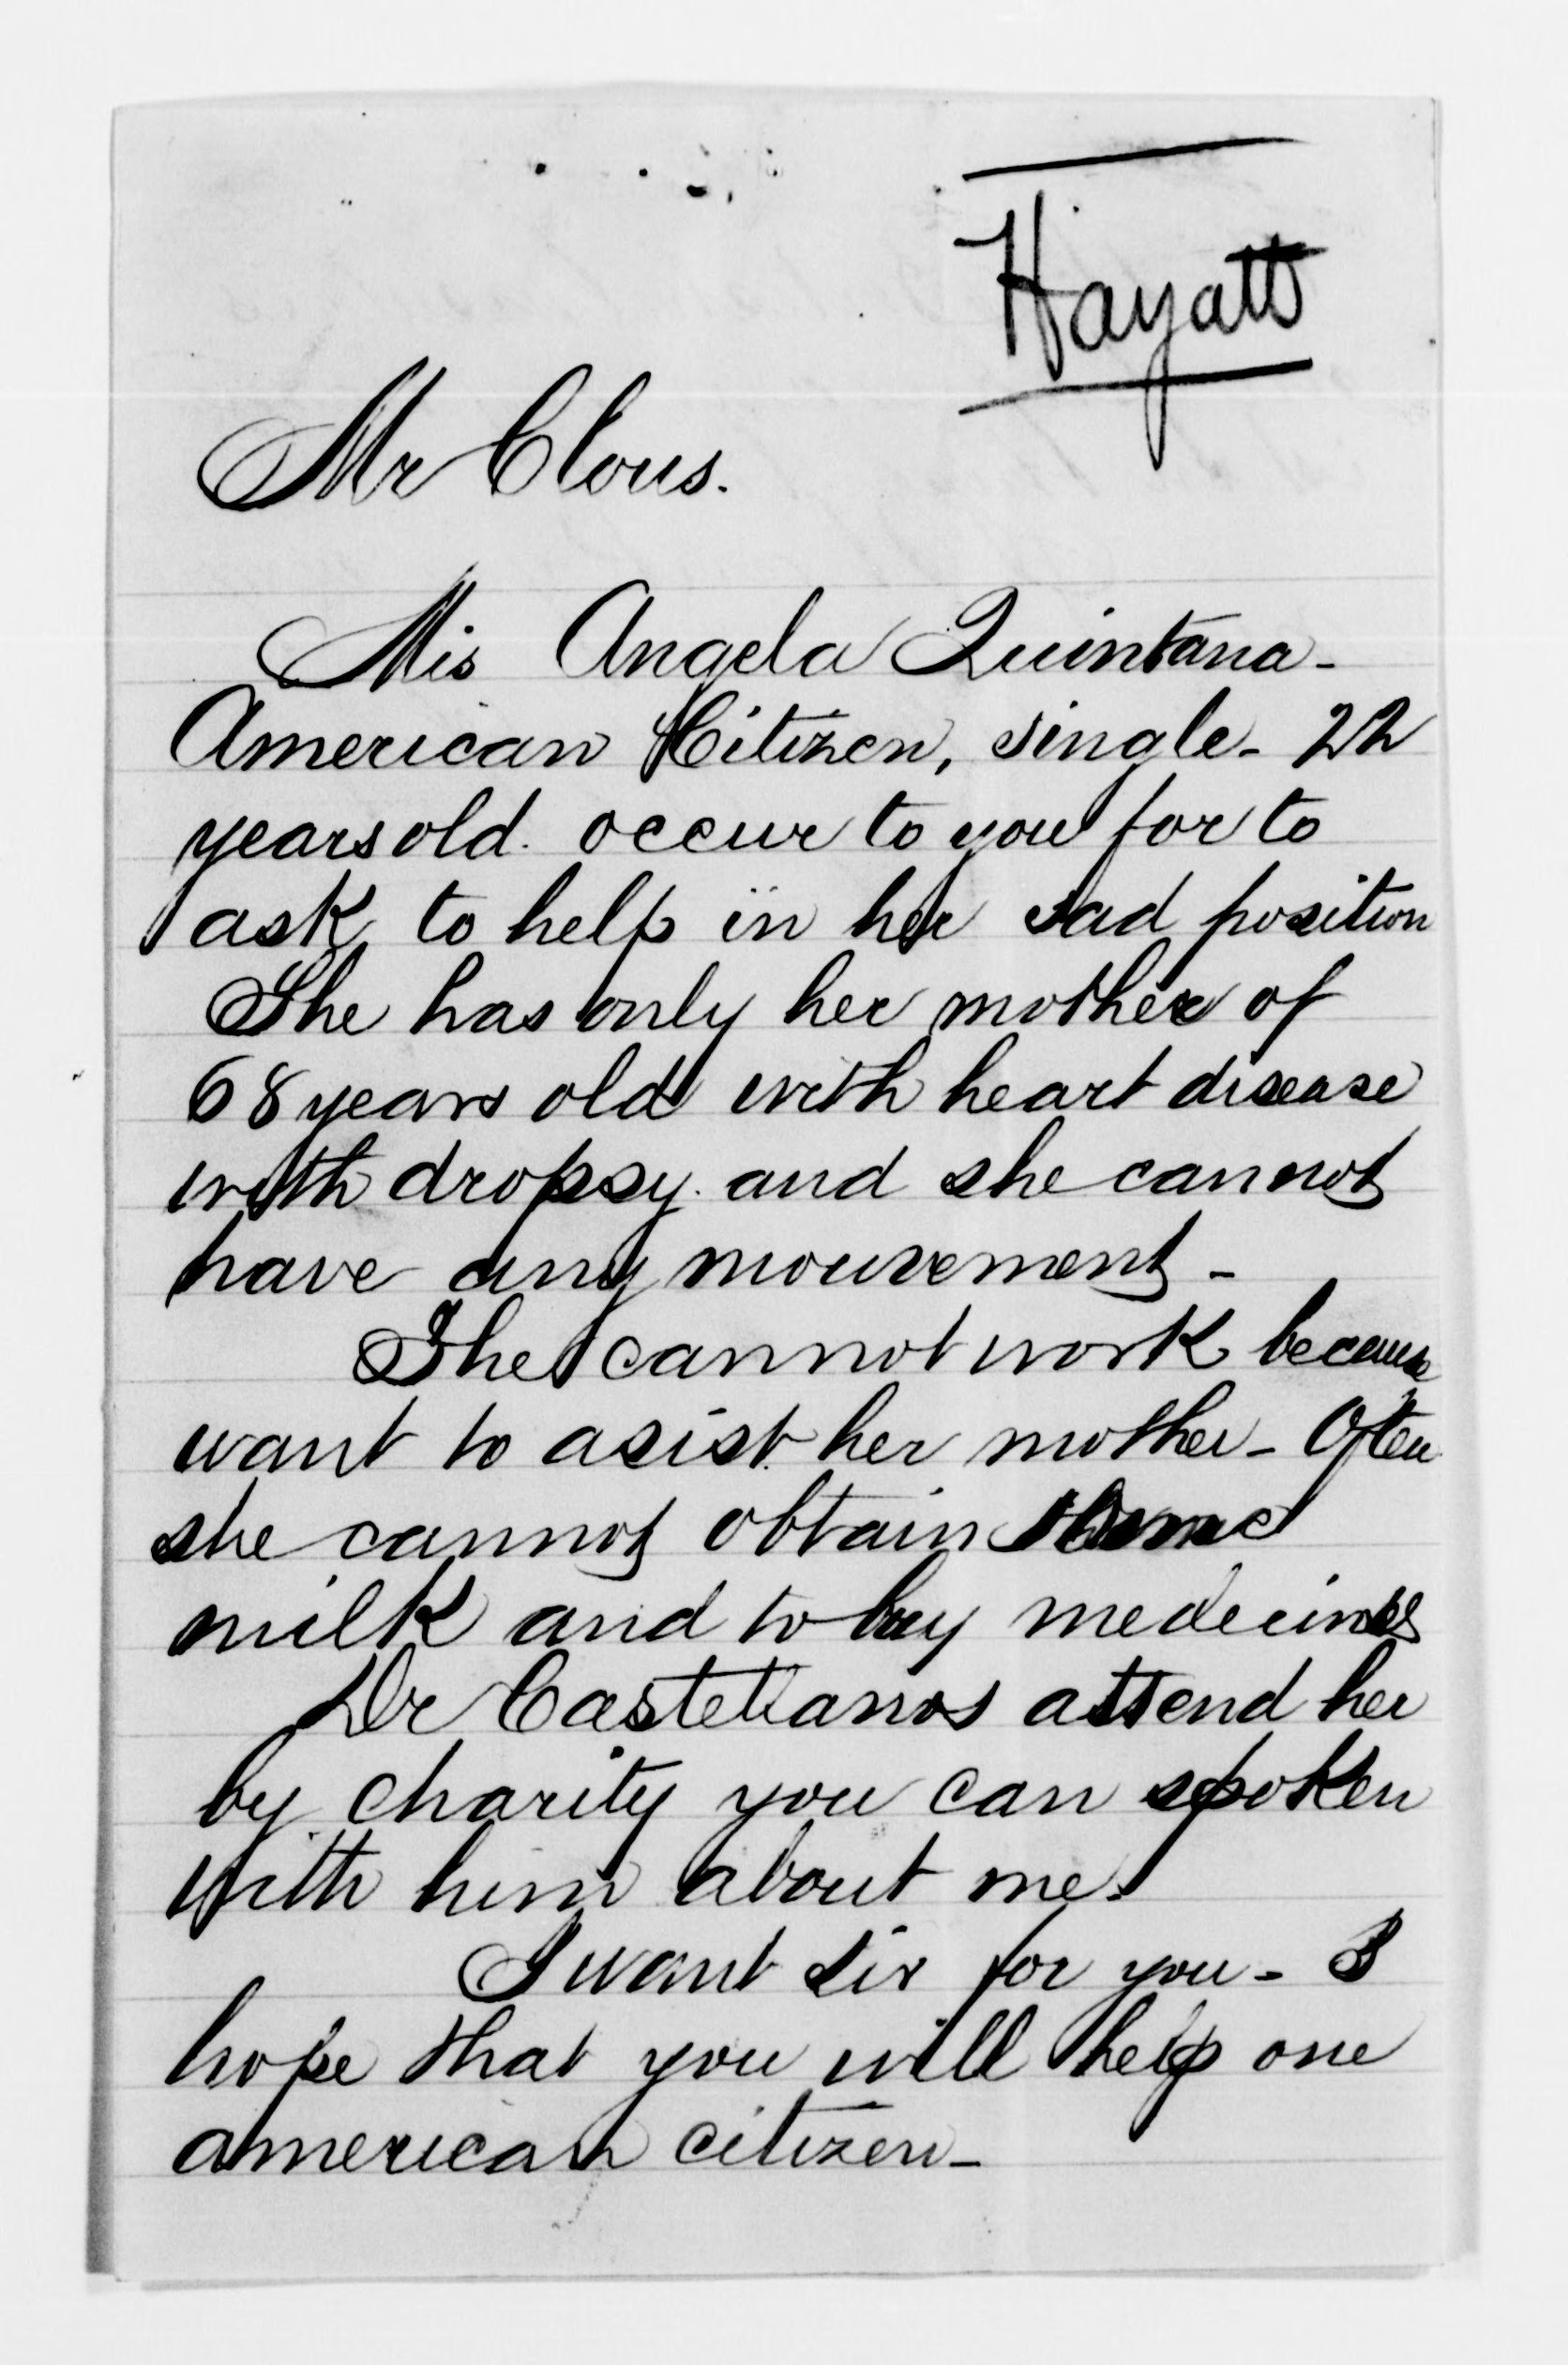 Hayatt
Mr Clous.
Mis Angela Quintana-
American Citizen, single- 22
years old. occur to you for to
ask to help in her sad position
She has only her mother of
68 years old with heart disease
with dropsy. and she cannot
have any mouvement-
She cannot work because
want to asist her mother- Often
she cannot obtain some
milk and to buy medecines
Dr Castellanos attend her
by charity you can spoken
with him about me.
I want sir for you- I
hope that you will help one
american citizen-